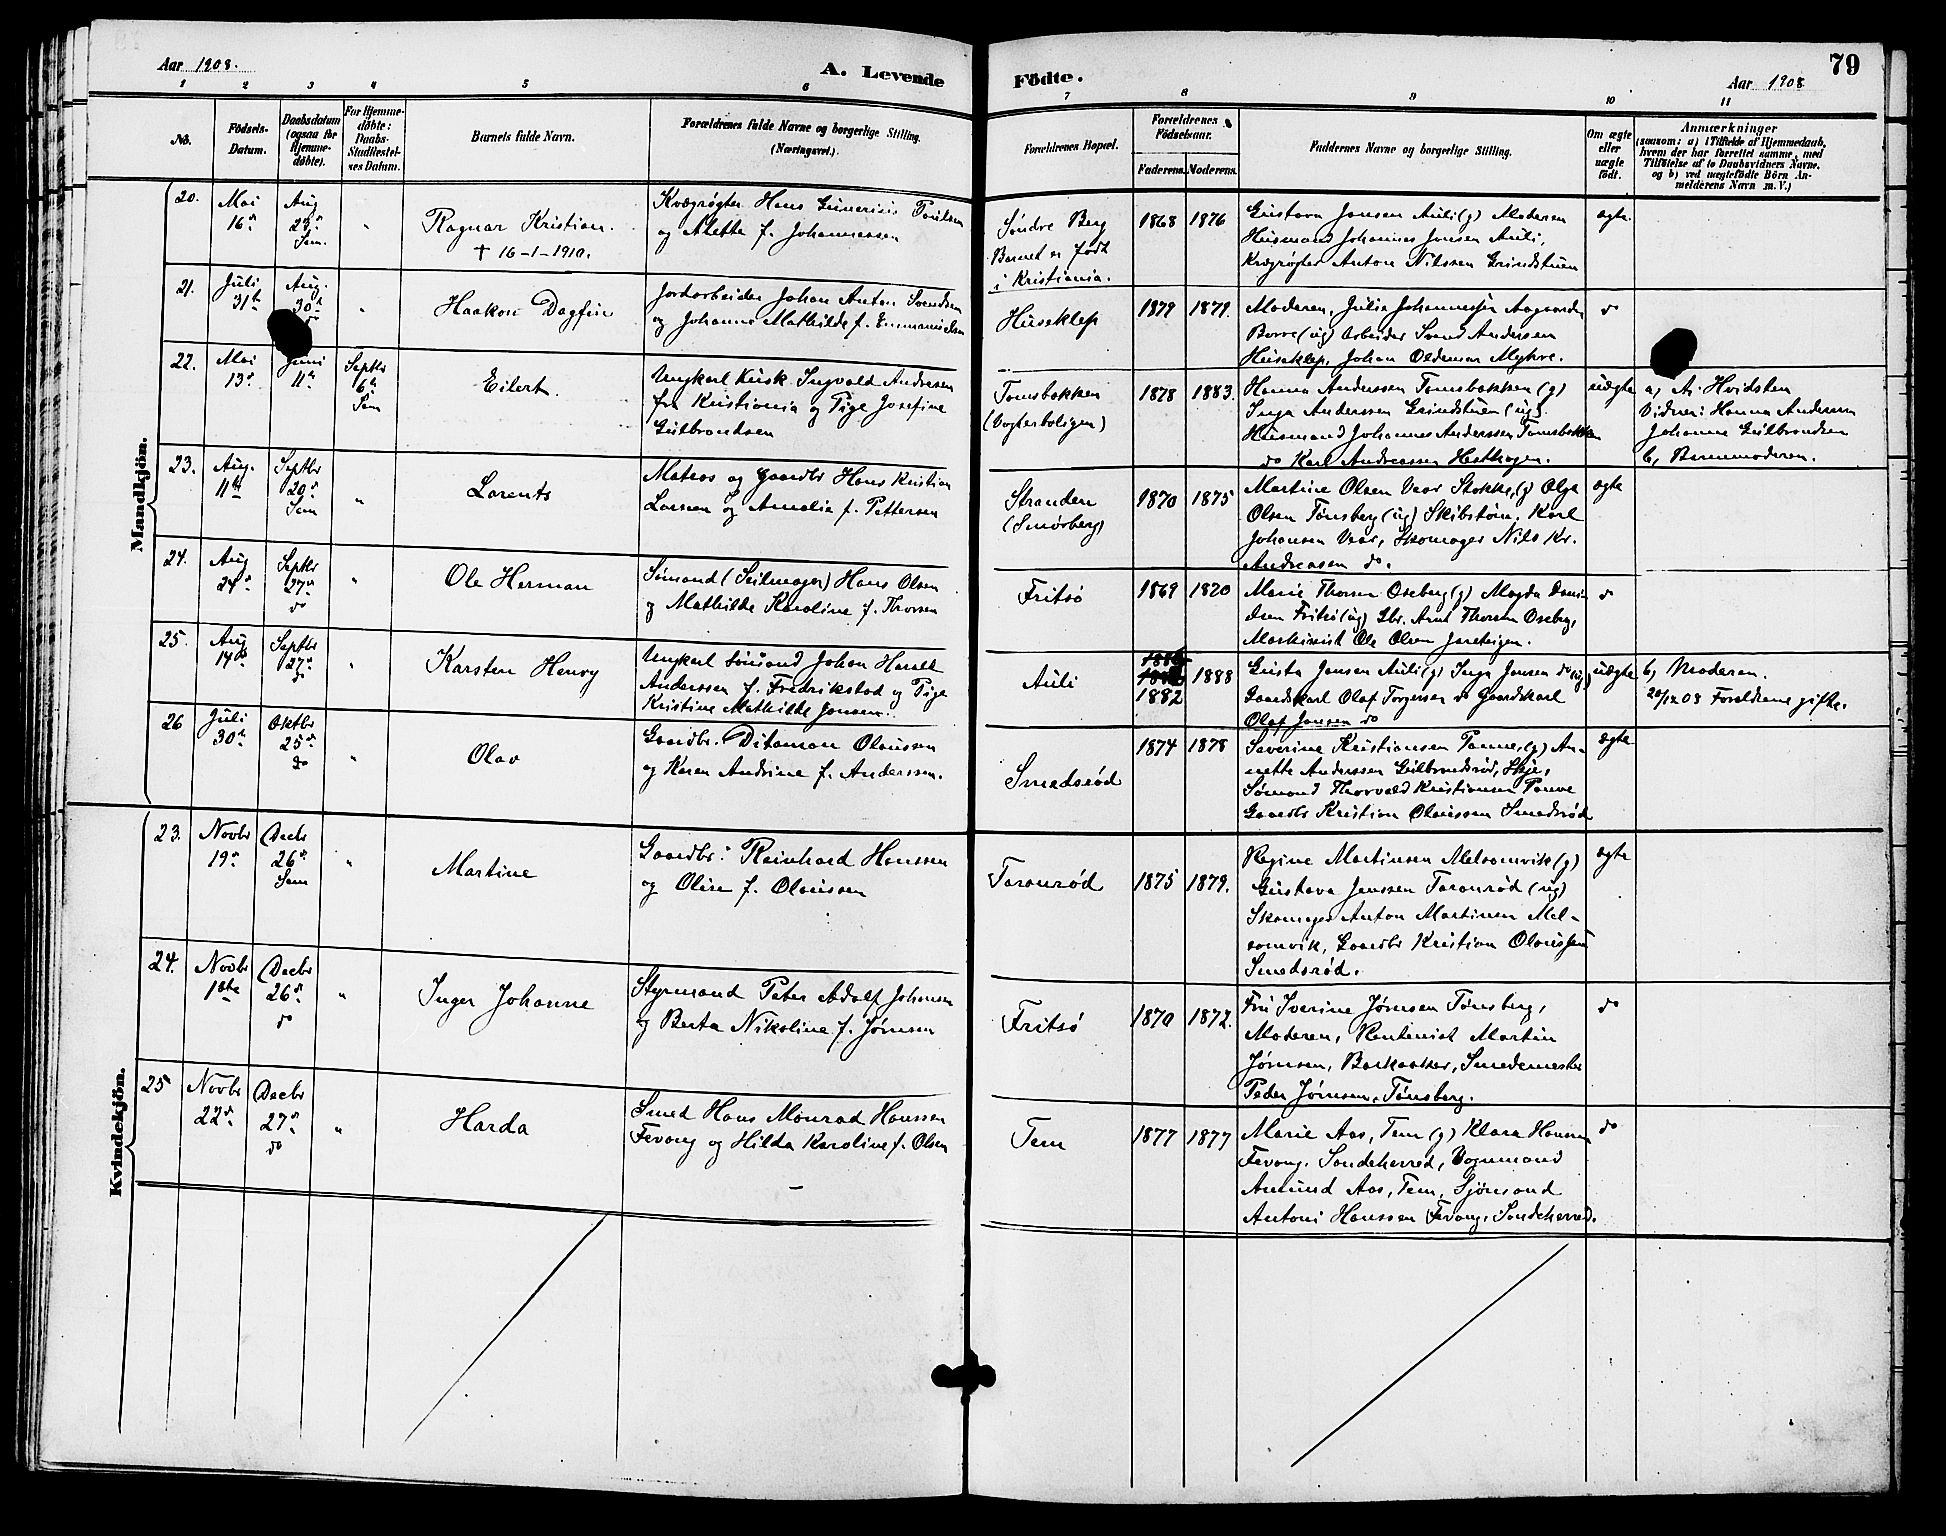 Aar 1908.
A. Levende
Födte.
Aar 1908
79
1 2 3 4 5 6 7 8 9 10 11
No.
Födsels-
Datum.
Daabsdatum
(ogsaa for
Hjemme-
döbte).
For Hjemme-
döbte:
Daabs-
Stadfæstel-
ses Datum.
Barnets fulde Navn.
Forældrenes fulde Navne og borgerlige Stilling.
(Næringsvei.)
Forældrenes Bopæl.
Forældrenes
Födselsaar.
Faderens. Moderens.
Faddernes Navne og borgerlige Stilling.
Om ægte
eller
uægte
født.
Anmærkninger
(saasom: a) i Tilfælde af Hjemmedaab,
hvem der har forrettet samme, med
Tilföielse af to Daabsvidners Navne,
og b) ved uægtefödte Börn An-
melderens Navn m. V.)
Mandkjön.
20.
Mai
16de
Aug
Sem.
"
Ragnar Kristian.
† 16-1-1910.
Kvægrøgter Hans
og Alette f. Johannessen
Søndre Berg
Barnet er født
i Kristiania.
1868 1876
Gustava Jensen Auli (g) Moderen
Husmand Johannes Jensen Auli,
Kvægrøgter Anton Nilssen Grindstuen
ægte
21.
Juli
31te
Aug.
30te
do
"
Haakon Dagfin
Jordarbeider Johan Anton Svendsen
og Johanne Mathilde f. Emmanuelsen
Huseklep
1879 1879.
Moderen, Julia Johannessen Aagaarden
Borre (ug) Arbeider Svend Anderssen
Huseklep, Johan Oldeman Myhre.
do
22.
Mai
13de
Juni
11te
Septbr
6te
Sem
Eilert.
Ungkarl Kusk Ingvald Andresen
fra Kristiania og Pige Josefine
Gulbrandsen
Tomsbakken
(Vogterboligen)
1878 1883.
Hanna Anderssen Tomsbakken (g)
Inga Anderssen Grindstuen (ug).
Husmand Johannes Anderssen Tomsbakken
do Karl Andreassen Hesthagen.
uægte
a, A. Hvidsten
Vidner: Hanna Andersen
Johanne Gulbrandsen
b, Barnemoderen.
23.
Aug.
11te
Septbr
20de
Sem
"
Lorents
Matros og Gaardbr Hans Kristian
Larsen og Amalia f. Pettersen
Stranden
(Smørberg)
1870 1875
Martine Olsen Vear Stokke, (g) Olga
Olsen Tønsberg (ug) Skibstøm. Karl
Johansen Vear, Skomager Nils Kr.
Andreasen do.
ægte
24.
Aug
Septbr
27de
do
"
Ole Herman
Sømand (Seilmager) Hans Olsen
og Mathilde Karoline f. Thorsen
Fritsø
1869 1870
Marie Thorsen Oseberg (g) Magda
Fritsø (ug) Gbr. Arnt Thorsen Oseberg,
Maskinist Ole Olsen
do
25.
Aug
14de
Septbr
27de
do
"
Karsten Henry
Ungkarl Sømand Johan
Anderssen f. Fredrikstad og Pige
Kristine Mathilde Jensen.
Auli
1882 1888
Gusta Jensen Auli (g) Inga Jensen do (ug)
Gaardskarl Olaf Torgersen do Gaardskarl
Olaf Jensen do
uægte
b, Moderen.
20/12 08 Forældrene gifte.
26
Juli
30te
Oktbr
25de
do
"
Olav
Gaardbr. Ditaman Olaussen
og Karen Andrine f. Anderssen.
Smedsrød
1874 1878
Severine Kristiansen Tanne, (g) An-
nette Anderssen Gulbrandsrød, Skje,
Sømand Thorvald Kristiansen Tanne
Gaardbr Kristian Olaussen Smedsrød
Ægte
Kvindekjön.
23.
Novbr
19de
Decbr
26de
Sem
"
Martine
Gaardbr: Reinhard Hanssen
og Oline f. Olaussen
Taranrød
1875 1879.
Regine Martinsen Melsomvik (g)
Gustava Jenssen Taranrød (ug)
Skomager Anton Martinsen Mel-
somvik, Gaardbr Kristian Olaussen
Smedsrød.
ægte
24.
Novbr
1ste
Decbr
26de
do
"
Inger Johanne
Styrmand Peter Adolf Johansen
og Berta Nikoline f. Jørnsen
Fritsø
1870 1872.
Fru Iverine Jørnsen Tønsberg,
Moderen, Rentenist Martin
Jørnsen, Barkaaker, Smedemester
Peder Jørnsen, Tønsberg.
do
25
Novbr
22de
Decbr
27de
do
"
Harda
Smed Hans Monrad Hanssen
Fevang og Hilda Karoline f. Olsen
Tem
1877 1877
Marie Aas, Tem (g) Klara Hanssen
Fevang, Sandeherred, Vognmand
Amund Aas, Tem, Sjømand
Antoni Hanssen Fevang, Sandeherred.
do